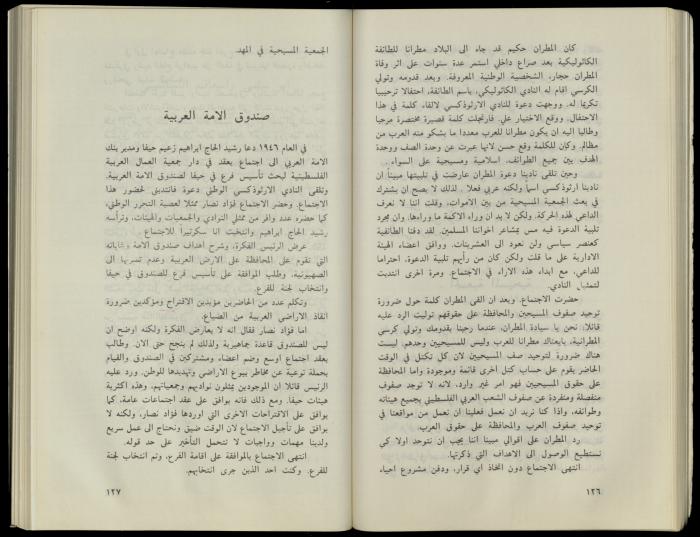 كان المطران حكيم قد جاء الى البلاد مطرانا للطائفة
الكاثوليكية بعد صراع داخلي استمر عدة سنوات على اثر وفاة
المطران حجار، الشخصية الوطنية المعروفة. وبعد قدومه وتولي
الكرسي اقام له النادي الكاثوليكي، باسم الطائفة، احتفالا ترحيبيا
تكريما له. ووجهت دعوة للنادي الارثوذكسي لالقاء كلمة في هذا
الاحتفال. ووقع الاختيار علي. فارتجلت كلمة قصيرة مختصرة مرحبا
وطالبا اليه ان يكون مطرانا للعرب معددا ما يشكو منه العرب من
مظالم. وكان للكلمة وقع حسن لانها عبرت عن وحدة الصف ووحدة
الهدف بين جميع الطوائف، اسلامية ومسيحية على السواء.
وحين تلقى نادينا دعوة المطران عارضت في تلبيتها مبينا ان
نادينا ارثوذكسي اسما ولكنه عربي فعلا. لذلك لا يصح ان يشترك
في بعث الجمعية المسيحية من بين الاموات، وقلت اننا لا نعرف
الداعي لهذه الحركة. ولكن لا بد ان وراء الاكمة ما وراءها. وان مجرد
تلبية الدعوة فيه مس بمشاعر اخواننا المسلمين. لقد دفنا الطائفية
كعنصر سياسي ولن نعود الى العشرينات. ووافق اعضاء الهيئة
الادارية على ما قلت ولكن كان من رأيهم تلبية الدعوة، احتراما
للداعي، مع ابداء هذه الاراء في الاجتماع. ومرة اخرى انتدبت
لتمثيل النادي.
حضرت الاجتماع. وبعد ان القى المطران كلمة حول ضرورة
توحيد صفوف المسيحين والمحافظة على حقوقهم توليت الرد عليه
قائلا: نحن يا سيادة المطران، عندما رحبنا بقدومك وتولي كرسي
المطرانية، بايعناك مطرانا للعرب وليس للمسيحيين وحدهم. ليست
هناك ضرورة لتوحيد صف المسيحيين لان كل تكتل في الوقت
الحاضر يقوم على حساب كتل اخرى قائمة وموجودة واما المحافظة
على حقوق المسيحيين فهو امر غير وارد، لانه لا توجد صفوف
منفصلة ومنفردة عن صفوف الشعب العربي الفلسطيني بجميع هيئاته
وطوائفه، واذا كنا نريد ان نعمل فعلينا ان نعمل من مواقعنا في
توحيد صفوف العرب والمحافظة على حقوق العرب.
رد المطران على اقوالي مبينا اننا يجب ان نتوحد اولا كي
نستطيع الوصول الى الاهداف التي ذكرتها.
انتهى الاجتماع دون اتخاذ اي قرار، ودفن مشروع احياء
١٢٦
الجمعية المسيحية في المهد.
صندوق الامة العربية
في العام ١٩٤٦ دعا رشيد الحاج ابراهيم زعيم حيفا ومدير بنك
الامة العربي الى اجتماع يعقد في دار جمعية العمال العربية
الفلسطينية لبحث تأسيس فرع في حيفا لصندوق الامة العربية.
وتلقى النادي الارثوذكسي الوطني دعوة فانتدبني لحضور هذا
الاجتماع. وحضر الاجتماع فؤاد نصار ممثلا لعصبة التحرر الوطني،
كما حضره عدد وافر من ممثلي النوادي والجمعيات والهيئات. وترأسه
رشيد الحاج ابراهيم وانتخبت انا سكرتيرا للاجتماع.
عرض الرئيس الفكرة، وشرح اهداف صندوق الامة وغاياته
التي تقوم على المحافظة على الارض العربية وعدم تسربها الى
الصهيونية. وطلب الموافقة على تأسيس فرع للصندوق في حيفا
وانتخاب لجنة للفرع.
وتكلم عدد من الحاضرين مؤيدين الاقتراح ومؤكدين ضرورة
انقاذ الاراضي العربية من الضياع.
اما فؤاد نصار فقال انه لا يعارض الفكرة ولكنه اوضح ان
ليس للصندوق قاعدة جماهيرية ولذلك لم ينجح حتى الان. وطالب
بعقد اجتماع اوسع وضم اعضاء ومشتركين في الصندوق والقيام
بحملة توعية عن مخاطر بيوع الاراضي وتهديدها للوطن. ورد عليه
الرئيس قائلا ان الموجودين يمثلون نواديهم وجمعياتهم، وهذه اكثرية
هيئات حيفا. ومع ذلك فانه يوافق على عقد اجتماعات عامة، كما
يوافق على الاقتراحات الاخرى التي اوردها فؤاد نصار، ولكنه لا
يوافق على تأجيل الاجتماع لان الوقت ضيق ونحتاج الى عمل سريع
ولدينا مهمات وواجبات لا تتحمل التأخير على حد قوله.
انتهى الاجتماع بالموافقة على اقامة الفرع، وتم انتخاب لجنة
للفرع. وكنت احد الذين جرى انتخابهم.
١٢٧